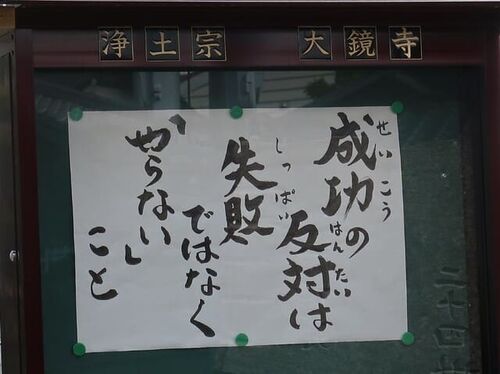 浄土宗 大鏡寺
成功の
せいこう
反対は
はんたい
失敗
しっぱい
ではなく
「やらない」
こと